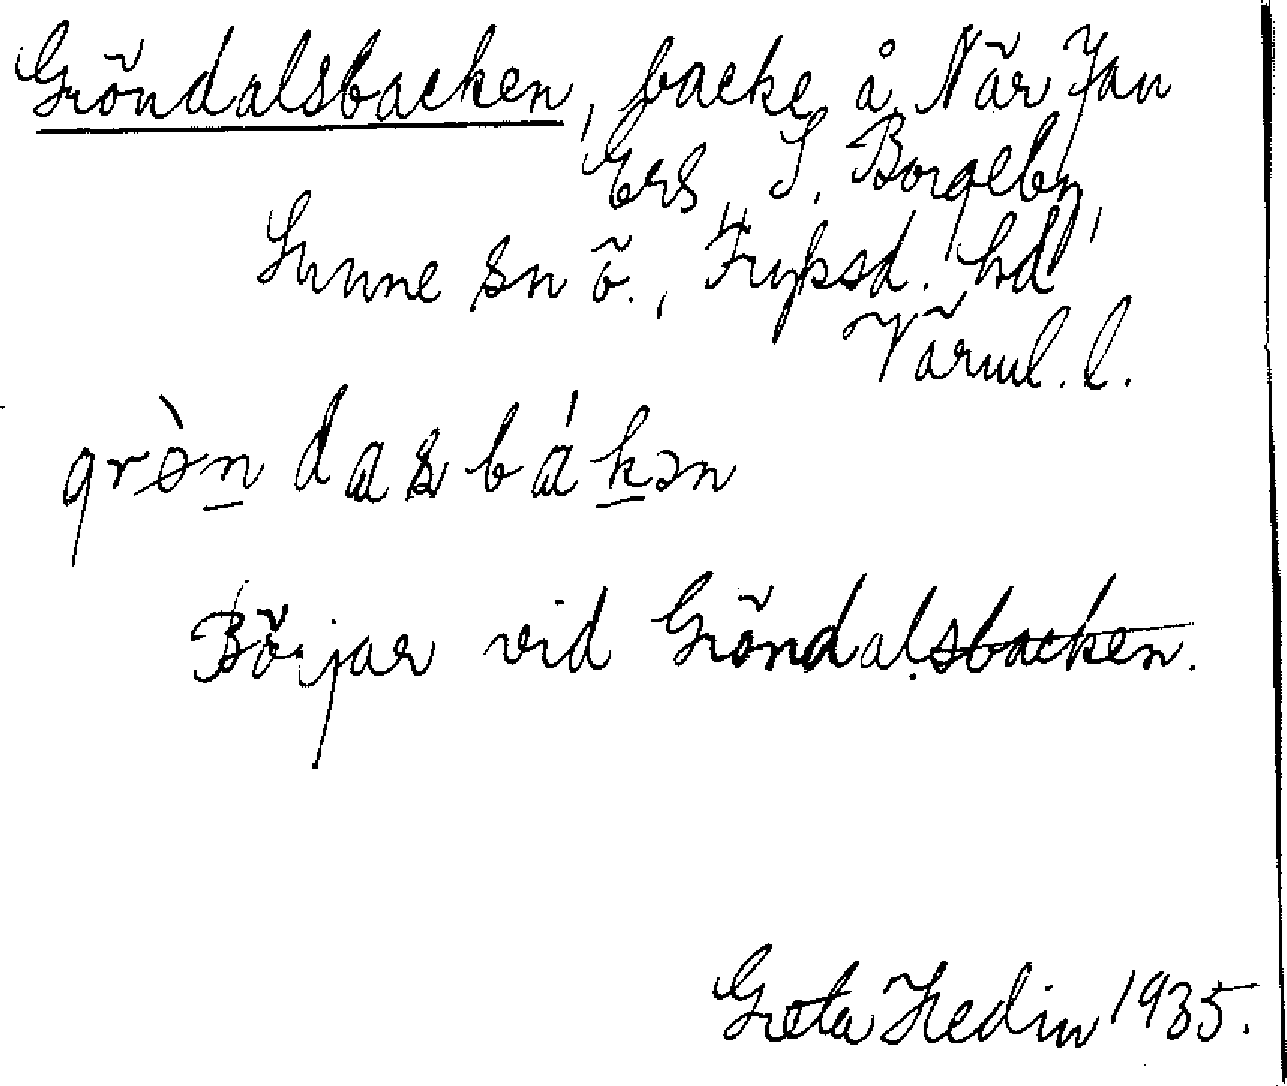 Gröndalsbacken, backe å När Jan
Ers, S. Borgeby,
Sunne sn ö., Fryksd. hd
Värml. l.
grɵ̀n das bákən
Börjar vid Gröndalsbacken.
Greta Hedin 1935.